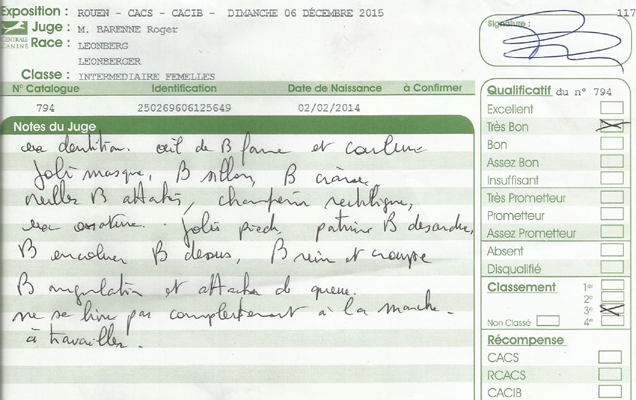 Exposition : ROUEN - CACS - CACIB - DIMANCHE 06 DÉCEMBRE 2015
117
Juge : M. BARENNE Roger
Race : LEONBERG
LEONBERGER
Classe : INTERMEDIAIRE FEMELLES
CENTRALE
CANINE
Signature :
N° Catalogue Identification Date de Naissance à Confirmer
794 250269606125649 02/02/2014
Notes du Juge
dentition. œil de B forme et couleur
Joli masque, B sillon, B crâne,
oreilles B attachés, chanfrein rectiligne,
ossature. Jolis pieds, B descendue,
B encolure B dessus, B rein et croupe
B angulation et attache de queue.
ne se livre pas complètement à la marche.
à travailler.
Qualificatif du n° 794
Excellent
Très Bon
Bon
Assez Bon
Insuffisant
Très Prometteur
Prometteur
Assez Prometteur
Absent
Disqualifié
Classement 1er
2e
3e
Non Classé 4e
Récompense
CACS
RCACS
CACIB